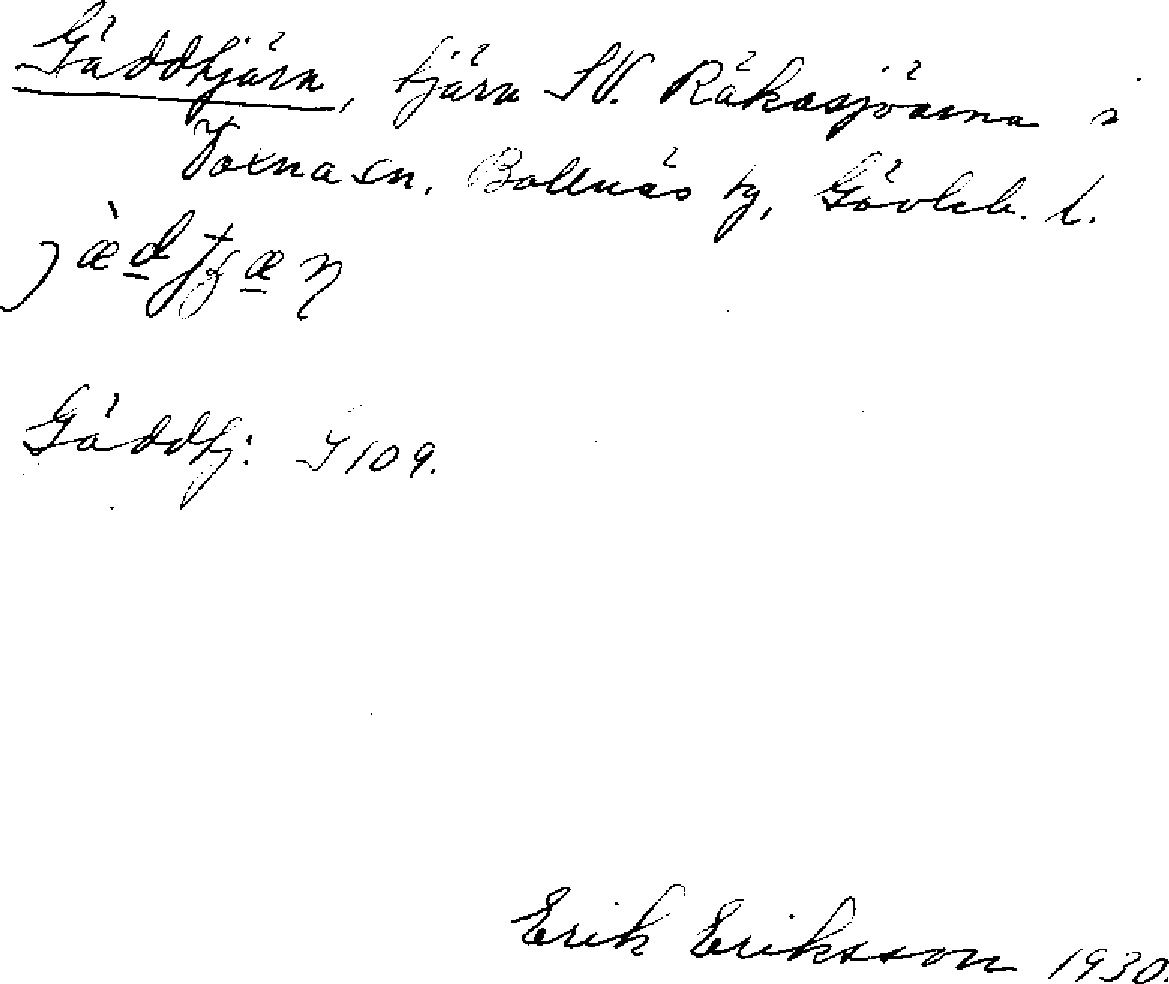 Gäddtjärn, tjärn SV. Råkasjöarna i
Voxna sn. Bollnäs tg, Gävleb. l.
Gäddtj: I 109.
Erik Eriksson 1930.